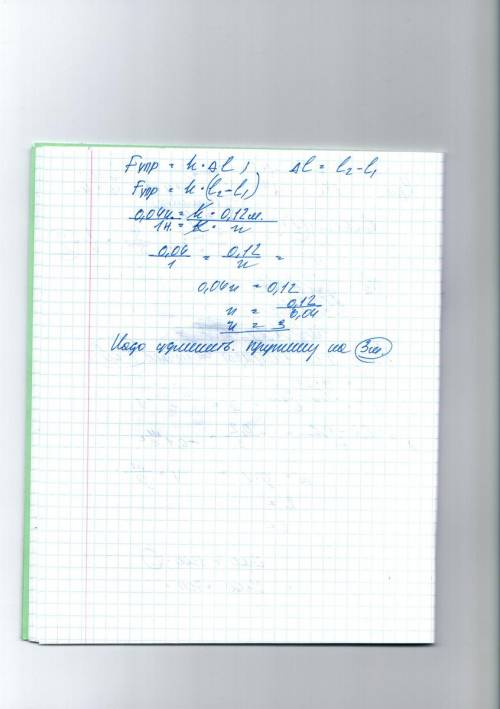 Fупр = к · Δl ; Δl = l₂ - l₁
Fупр = к · (l₂ - l₁)
0,04н. = к · 0,12м.
1н. = к · х
0,04 / 1 = 0,12 / х =
0,04х = 0,12
х = 0,12 / 0,04
х = 3
Надо удлинить. пружину на 3м